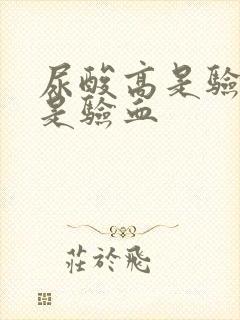 尿酸高是验
是验血
莊於飛